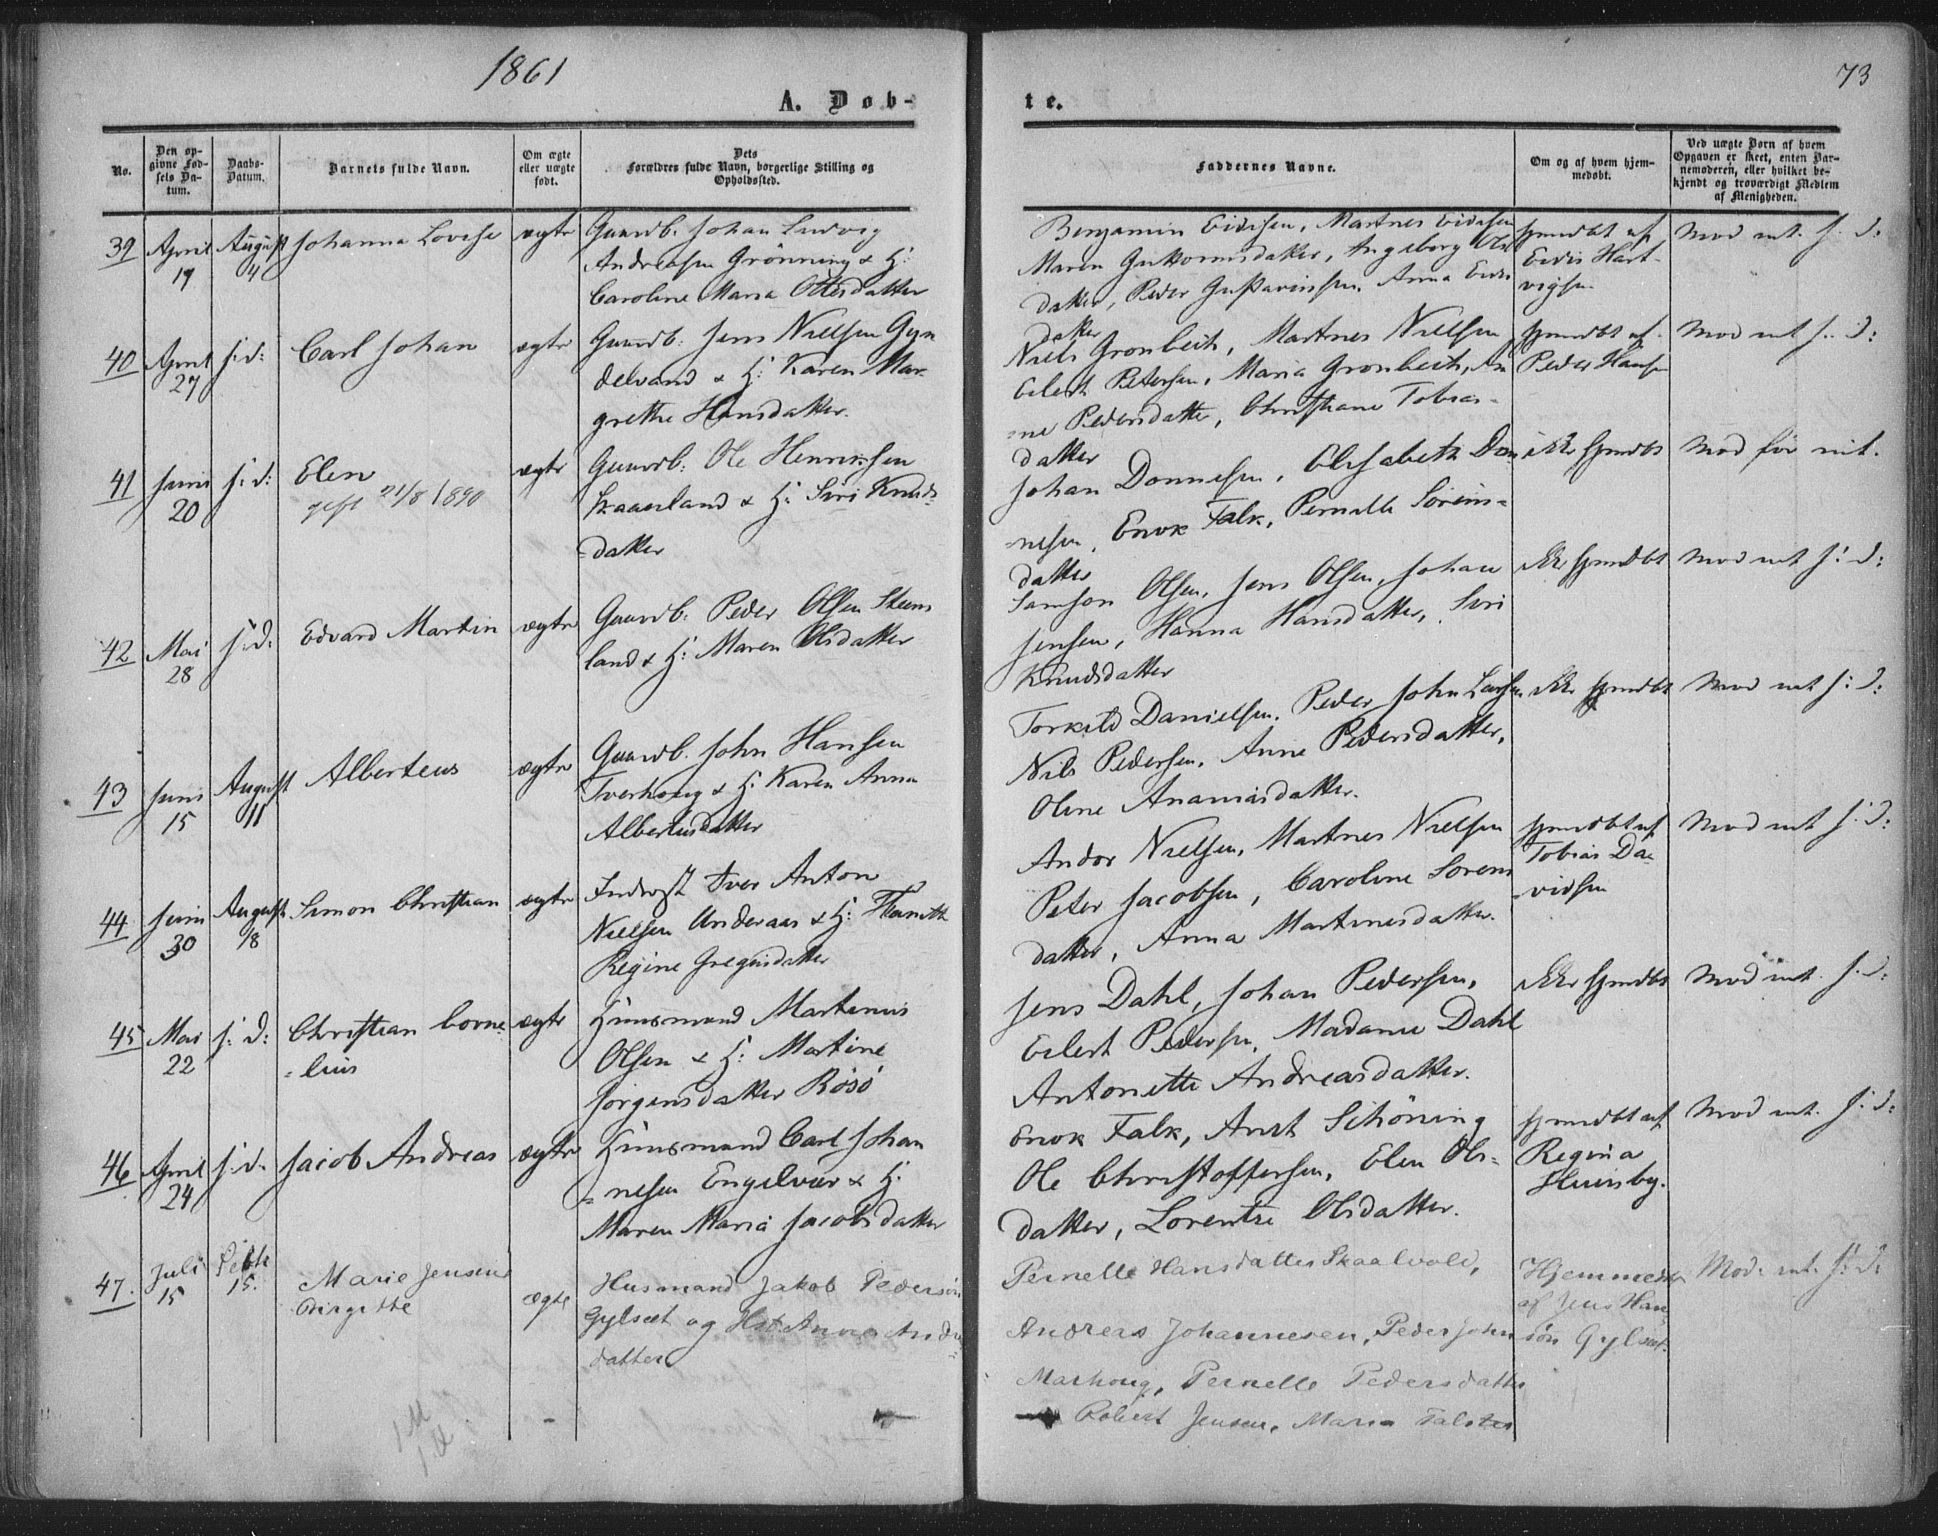 1861
73
A. Döb-
te.
No.
Den op-
givne Fød-
sels Da-
tum.
Daabs-
Datum.
Barnets fulde Navn.
Om ægte
eller uægte
født.
Dets
Forældres fulde Navn, borgerlige Stilling og
Opholdssted.
Faddernes Navne.
Om og af hvem hjem-
medøbt.
Ved uægte Børn af hvem
Opgaven er skeet, enten Bar-
nemoderen, eller hvilket be-
kjendt og troværdigt Medlem
af Menigheden.
39 April 19 August 4 Johanna Lovise ægte
Gaardb. Johan Ludvig
Andreasen Grönning & H:
Caroline Maria Ottesdatter
Benjamin Eidisen, Martnes Eidisen
Maren Guttormsdatter, Ingeborg Ols
datter, Peder Gustavinssen, Anna Eidis
datter
hjemdbt af
Eidis Hart-
vigsen
Mod nt. s. d:
40 April 27 s: d: Carl Johan ægte
Gaardb: Jens Nielsen Gyn
delvand & H: Karen Mar
grethe Hansdatter.
Niels Gronbech, Martnes Nielsen
Eilert Petersen, Maria Gronbech, An
ne Pedersdatter, Christiane Tobias-
datter
hjemdbt af.
Peder Hansen
Mod nt s: d:
41 Juni 20 s: d: Elen
gift 21/8 1890
ægte
Gaardb: Ole Henriksen
Skaanland & H: Siri Knuds-
datter
Johan Donnesen, Elisabeth Don
nesen, Enok Falk, Pernille Sörens-
datter
ikke hjemdbt
Mod för nt.
42 Mai 28 s: d: Edvard Martin ægte
Gaardb. Peder Olsen Steens
land & H: Maren Olsdatter
Samson Olsen, Jens Olsen, Johan
Jensen, Hanna Hansdatter, Siri
Knudsdatter
ikke hjemdbt
Mod nt s: d:
43 Juni 15 August 11 Alberteus ægte
Gaardb. John Hansen
Tverhoug & H: Karen Anna
Albertusdatter
Torkild Danielsen. Peder John Larsen
Nils Pedersen, Anne Pedersdatter,
Oline Ananiasdatter.
ikke hjemdbt
Mod nt s: d:
44 Juni 30 August 18 Simon Christian ægte
Inderst Iver Anton
Nielsen Anderaas & H:
Regine Gregusdatter
Andor Nielsen, Martnes Nielsen
Peter Jacobsen, Caroline Sorens
datter, Anna Martinesdatter.
hjemdbt af
Tobias Da-
vidsen
Mod nt s: d:
45 Mai 22 s: d: Christian Corne-
lius
ægte
Huusmand Martinus
Olsen & H: Martine
Jörgensdatter Rösö
Jens Dahl, Johan Pedersen,
Eilert Pedersen, Madame Dahl
Antonette Andreasdatter.
ikke hjemdbt
Mod nt. s. d:
46 April 24 s: d. Jacob Andreas ægte
Huusmand Carl Johan
nesen Engelvær & H:
Maren Maria Jacobsdatter
Enok Falk, Anst Schöning
Ole Christoffersen, Elen Ols-
datter, Lorentse Olsdatter.
hjemdbt af
Regina
Huusby.
Mod nt. s: d:
47. Juli 15 Septe 15. Marie Jensine
Birgitte
ægte
Husmand Jakob Pedersön
Gylset og Hst Anne Andr-
datter
Pernelle Hansdatter Skaalvold,
Andreas Johannesen, Peder John
Marhoug, Pernelle Pedersdatter
Robert Jensen, Maria Falster
Hjemmedøbt
af Jens Han-
sön Gylset.
Mod. nt. s: d:
1 M
1 Q